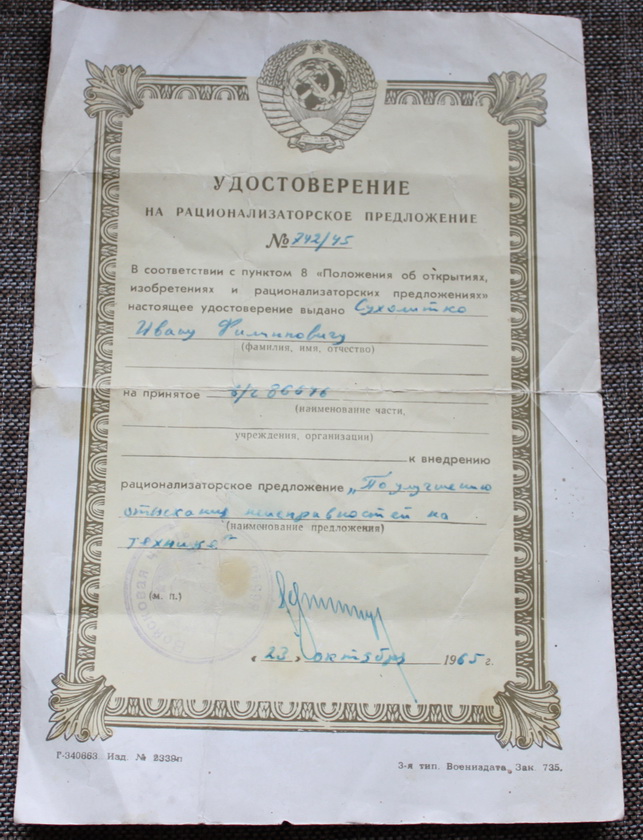 УДОСТОВЕРЕНИЕ
НА РАЦИОНАЛИЗАТОРСКОЕ ПРЕДЛОЖЕНИЕ
№ 742/45
В соответствии с пунктом 8 «Положения об открытиях,
изобретениях и рационализаторских предложениях»
настоящее удостоверение выдано Сухолитко
Ивану Филипповичу
(фамилия, имя, отчество)
на принятое в/ч
(наименование части,
учреждения, организации)
к внедрению
рационализаторское предложение „По улучшению
отысканию неисправностей на
(наименование предложения)
технике"
(м. п.)
Войсковая
« 23 » октября 1965 г.
Г-340663 Изд. №
3-я тип. Воениздата Зак 735.